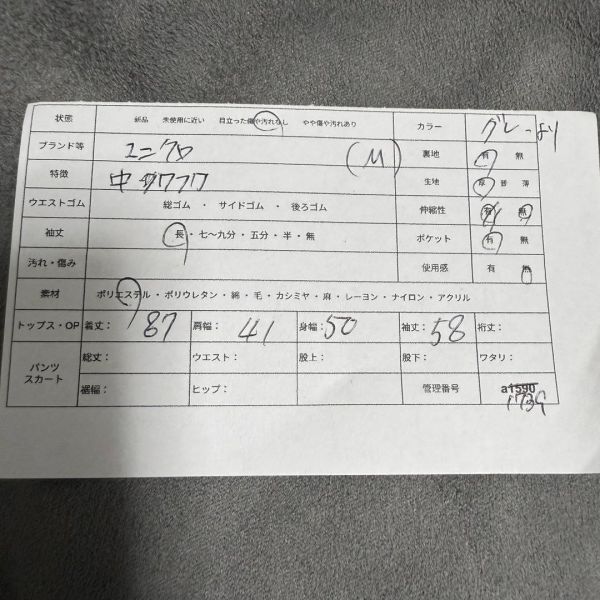 状態 新品 未使用に近い 目立った傷や汚れなし やや傷や汚れあり カラー グレーより
ブランド等 ユニクロ (M) 裏地 有 無
特徴 中フワフワ 生地 厚 普 薄
ウエストゴム 総ゴム ・ サイドゴム ・ 後ろゴム 伸縮性 有 無
袖丈 長・七〜九分・五分・半・無 ポケット 有 無
汚れ・傷み 使用感 有 無
素材 ポリエステル・ポリウレタン・綿・毛・カシミヤ・麻・レーヨン・ナイロン・アクリル
トップス・OP 着丈: 87 肩幅: 41 身幅: 50 袖丈: 58 裄丈:
パンツ スカート 総丈: ウエスト: 股上: 股下: ワタリ:
裾幅: ヒップ: 管理番号 a1590
1739